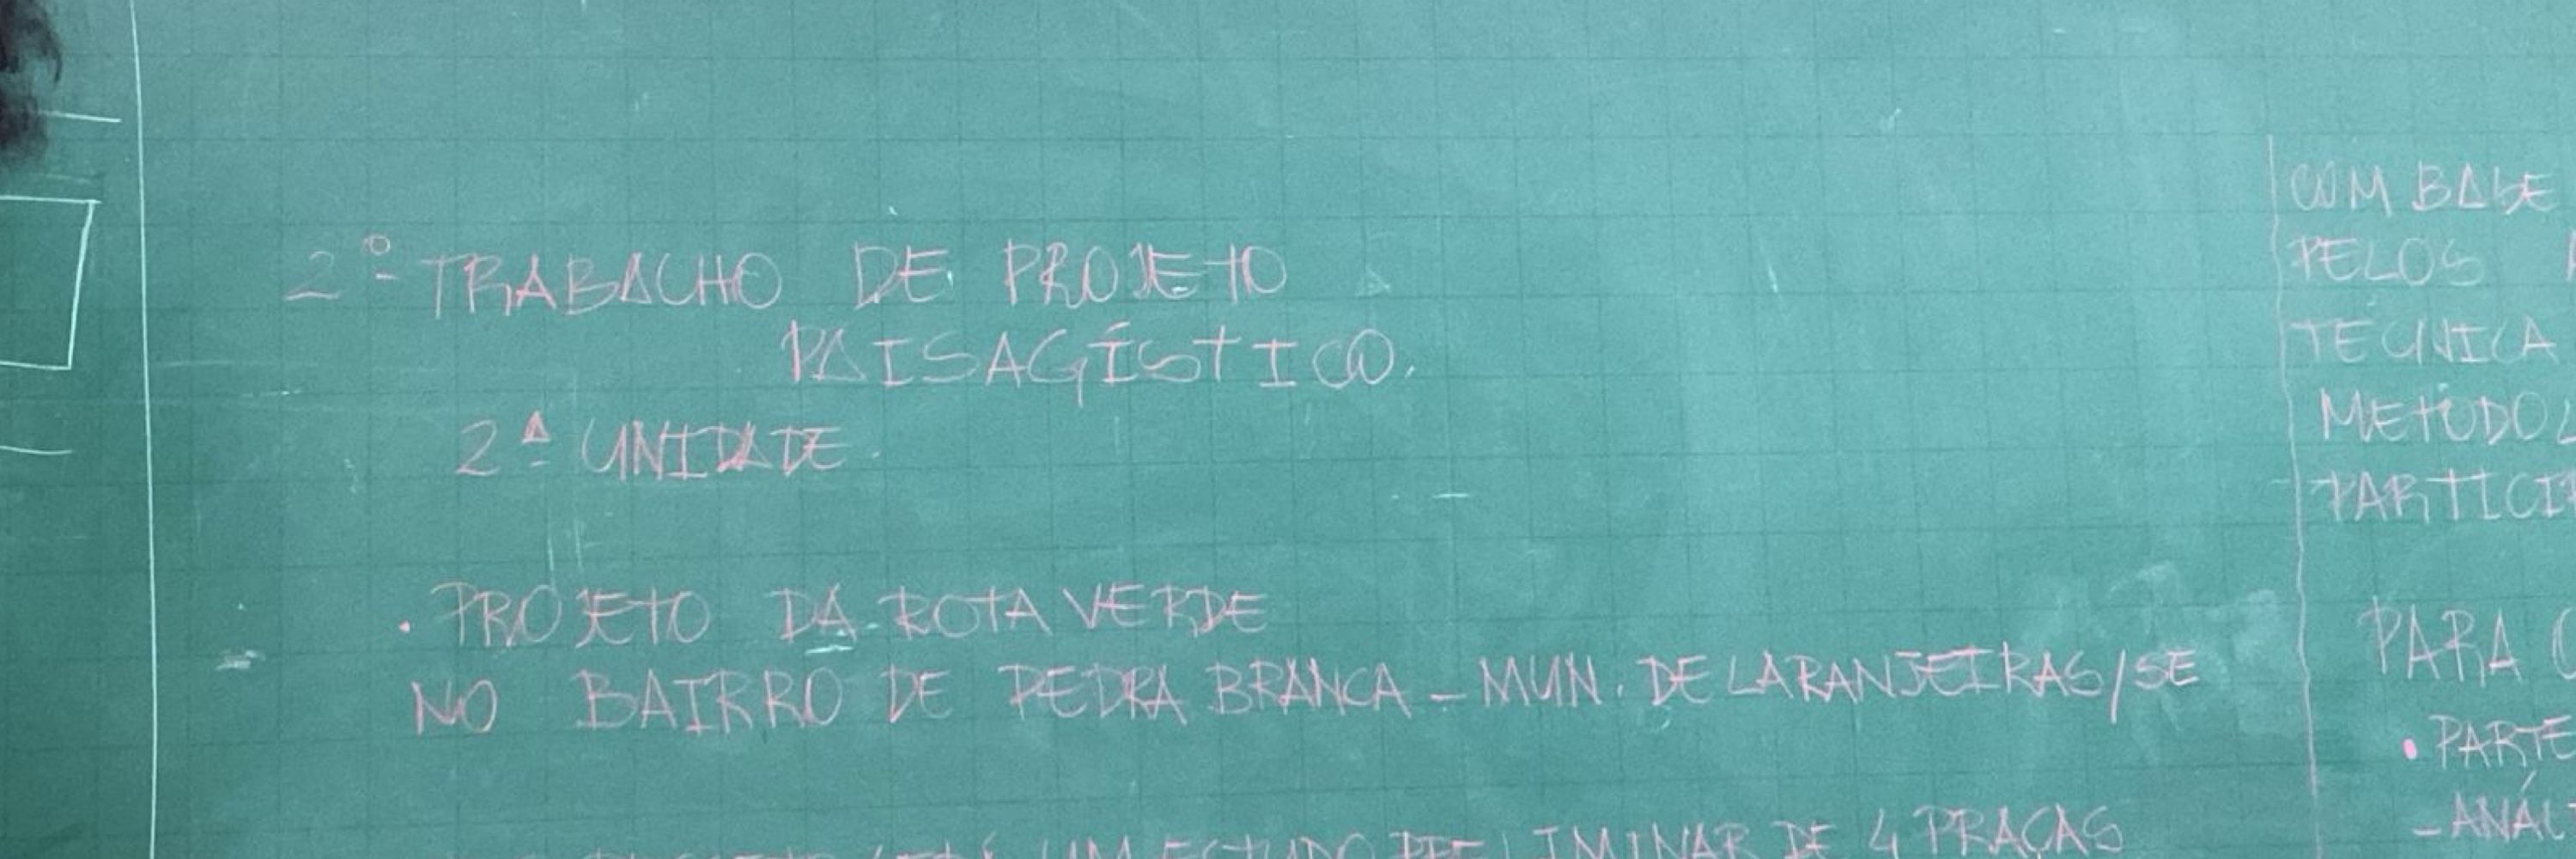 2º TRABALHO DE PROJETO
PAISAGÍSTICO.
2ª UNIDADE.
• PROJETO DA ROTA VERDE
NO BAIRRO DE PEDRA BRANCA - MUN. DE LARANJEIRAS/SE
UM ESTUDO PRELIMINAR DE 4 PRAÇAS
COM BASE
PELOS
TÉCNICA
METODOL
PARTICIP
PARA
• PARTE
- ANÁL